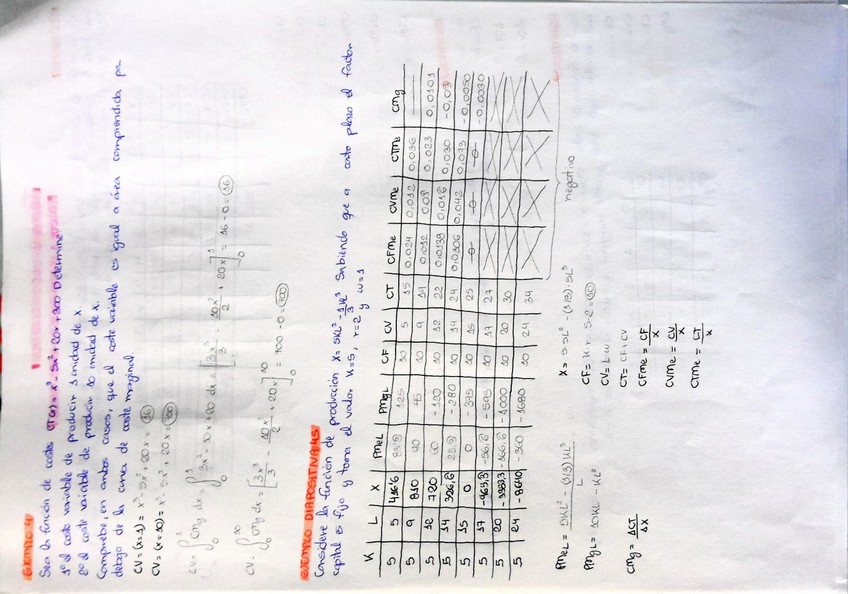 EJEMPLO 4
Sea la función de costes CT(x) = x³-5x²+20x+300 Determine
1º el coste variable de producir 1 unidad de x.
2º el coste variable de producir 10 unidad de x.
Compruebe, en ambos casos, que el coste variable es igual a área comprendida por
debajo de la curva de coste marginal.
CV = (x=1) = x³-5x²+20x = 16
CV = (x=10) = x³-5x²+20x = 700
CV = ∫₀¹ CMg dx = ∫₀¹ 3x²-10x+20 dx = [3x³/3 - 10x²/2 + 20x]₀¹ = 16-0 = 16
CV = ∫₀¹⁰ CMg dx = [3x³/3 - 10x²/2 + 20x]₀¹⁰ = 700-0 = 700
EJEMPLO DIAPOSITIVA 45
Considere la función de producción X= 5KL² - 1/3 KL³ Sabiendo que a corto plazo el factor
capital es fijo y toma el valor K=5, r=2 y w=1
K L X PMeL PMgL CF CV CT CFMe CVMe CTMe CMg
5 5 416'6 83,3 125 10 5 15 0,024 0,012 0,036
5 9 810 90 45 10 9 19 0,012 0,011 0,023 0,0101
5 12 720 60 -120 10 12 22 0,0138 0,016 0,030 -0,03
5 14 326,6 23,3 -280 10 14 24 0,0306 0,042 0,073 -0,0050
5 15 0 0 -375 10 15 25 -0- -0- -0- -0,0030
5 17 -963,3 -56,6 -595 10 17 27
5 20 -3333,3 -166,6 -1000 10 20 30
5 24 -8640 -360 -1680 10 24 34
negativo
PMeL = 5KL² - (1/3)KL³ / L
PMgL = 10KL - KL²
CMg = ΔCT / ΔX
X = 5·5L² - (1/3)·5L³
CF = K·r 5·2 = 10
CV = L·w
CT = CF+CV
CFMe = CF / X
CVMe = CV / X
CTMe = CT / X